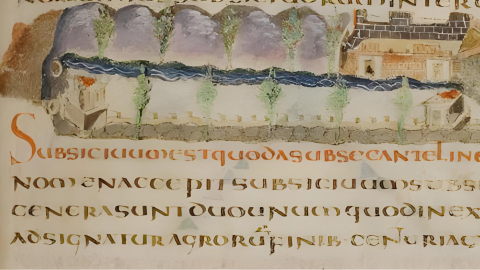 SUBSICIUUMESTQUODASUBSECANTELINE
NOMENACCEPITSUBSICIUUMSUBSI
GENERASUNTDUOUNUMQUODINEX
ADSIGNATURAGRORŪFINIB·CENTURIAE